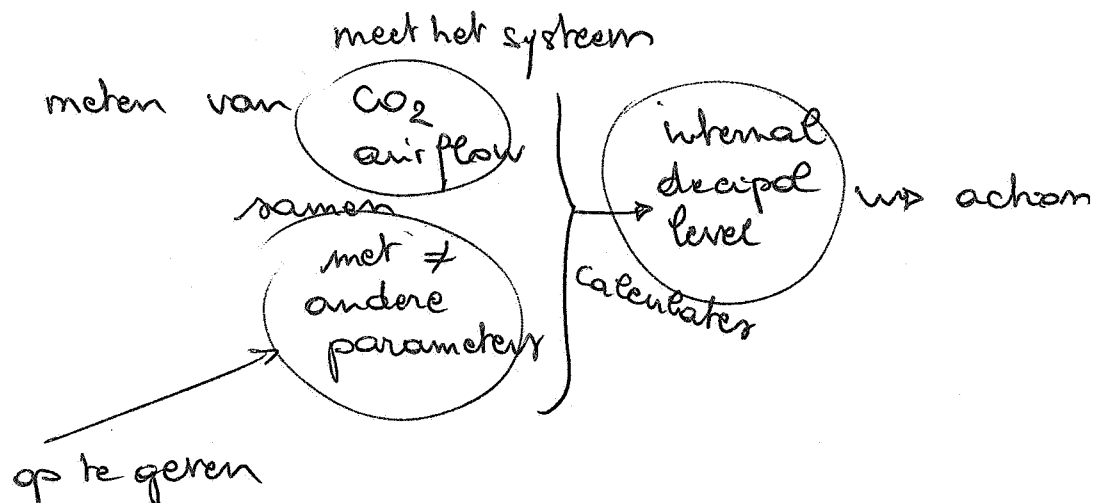 meet het systeem
meten van CO₂
airflow
samen
met ≠
andere
parameters
op te geven
calculates
internal
decipol
level
action